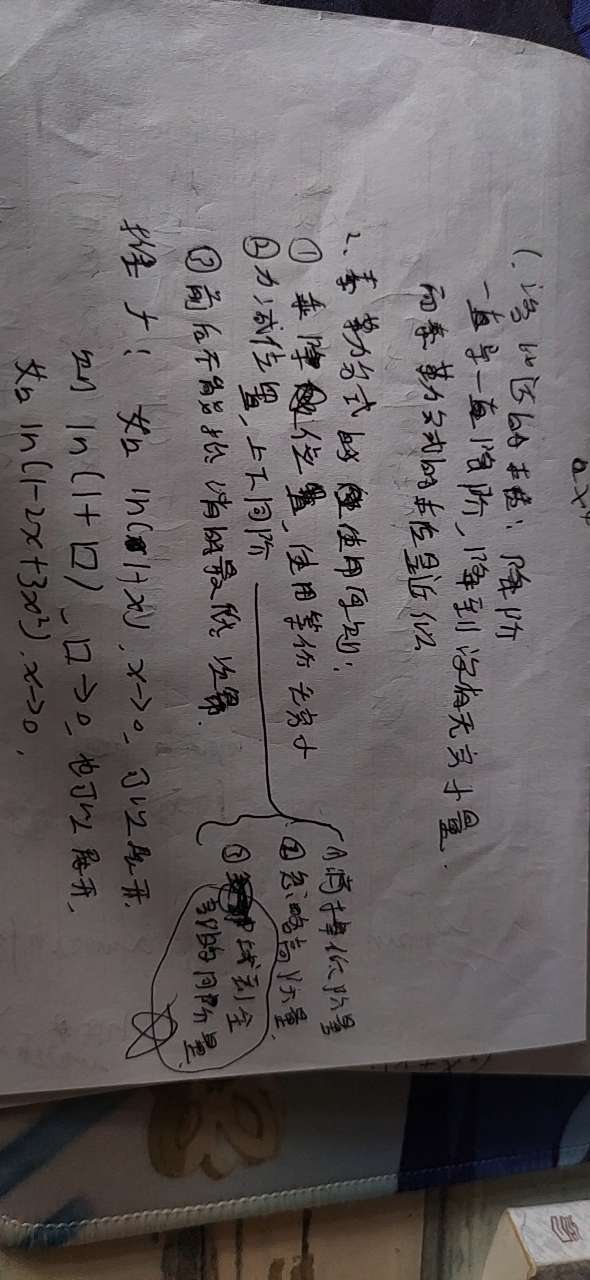 ax⁴
1. 洛必达的本质：降阶
一直导一直降阶、降到没有无穷小量.
而泰勒公式的本质是近似
2. 泰勒公式的使用原则：
① 乘除位置、使用等价无穷小
② 加减位置、上下同阶
③ 前后不能抵消的最低次幂.
① 消掉低阶量
② 忽略高阶量.
③ 找到全部的同阶量.
推广：如 ln(1+x). x→0、可以展开.
则 ln(1+口)、口→0、也可以展开、
如 ln(1-2x+3x²). x→0、